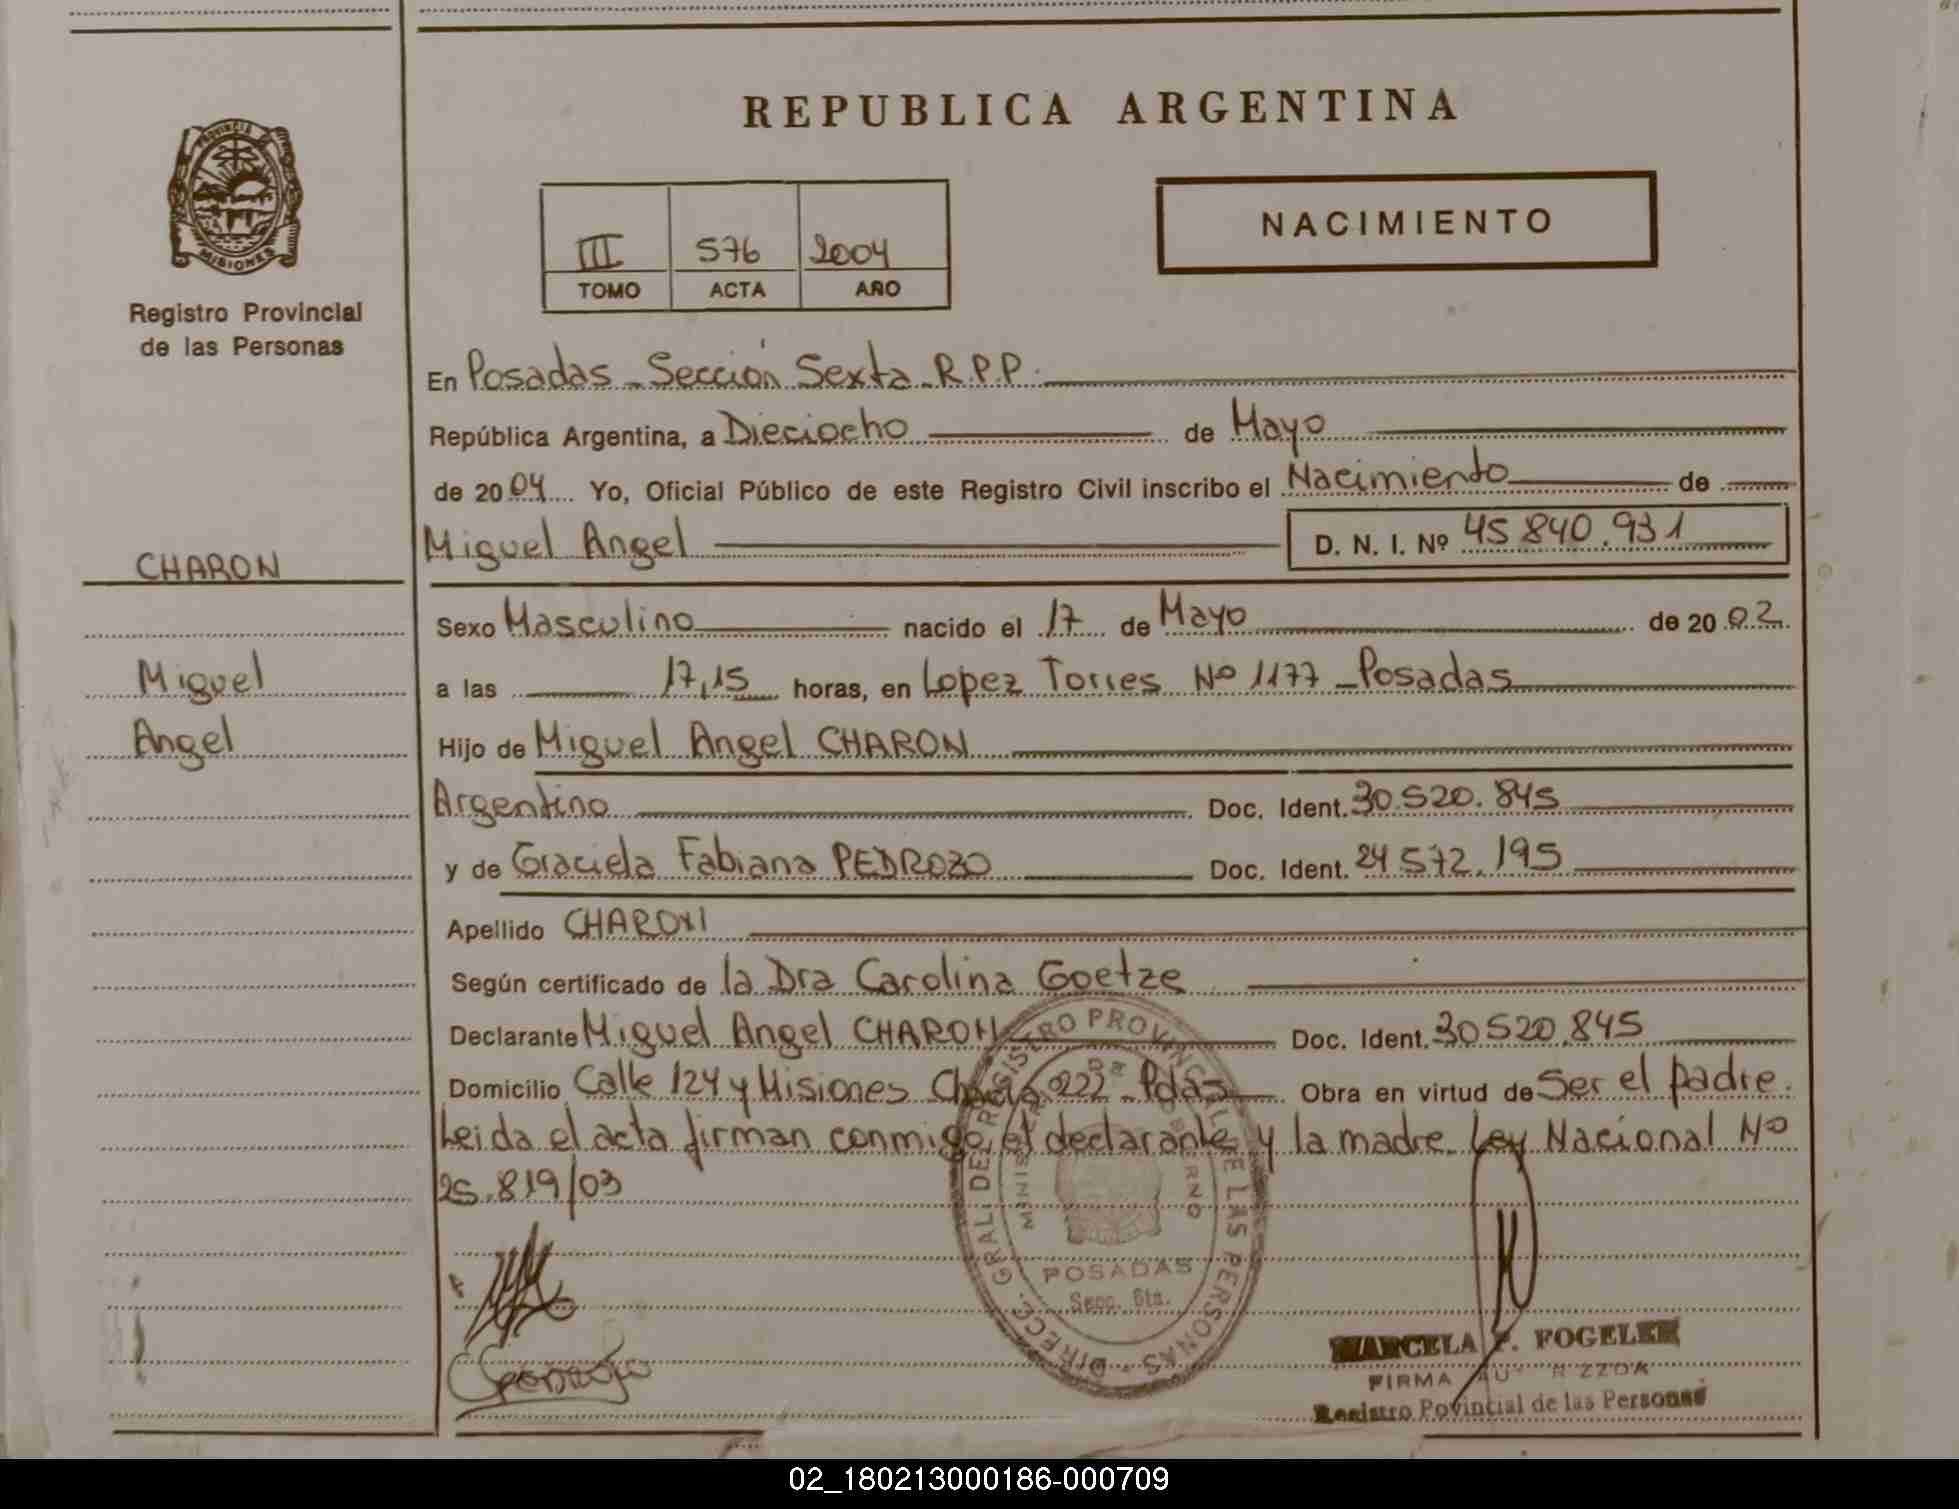 REPUBLICA ARGENTINA
PROVINCIA
MISIONES
Registro Provincial
de las Personas
III 576 2004
TOMO ACTA AÑO
NACIMIENTO
En Posadas _ Sección Sexta _ R.P.P.
República Argentina, a Dieciocho de Mayo
de 2004 Yo, Oficial Público de este Registro Civil inscribo el Nacimiento de
Miguel Angel D. N. I. Nº 45 840.931
CHARON
Sexo Masculino nacido el 17 de Mayo de 2002
Miguel
a las 17,15 horas, en Lopez Torres Nº 1177 _ Posadas
Angel
Hijo de Miguel Angel CHARON
Argentino Doc. Ident. 30.520.845
y de Graciela Fabiana PEDROZO Doc. Ident. 24 572.195
Apellido CHARON
Según certificado de la Dra Carolina Goetze
Declarante Miguel Angel CHARON Doc. Ident. 30520.845
Domicilio Calle 124 y Misiones 222 _ Pdas Obra en virtud de Ser el padre.
Leida el acta firman conmigo el declarante y la madre. Ley Nacional Nº
25.819/03
DIRECC. GRAL. DEL REGISTRO PROVINCIAL DE LAS PERSONAS
POSADAS
Secc. 6ta.
MARCELA P. FOGELER
FIRMA
Registro Povincial de las Personas
02_180213000186-000709